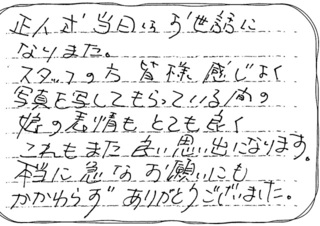 当日は お世話に
なりました。
スタッフの方 皆様 感じよく
写真を写してもらっている 間の
娘の表情も とても良く
これもまた 良い 思い出になります。
本当に 急な お願いにも
かかわらず ありがとうございました。